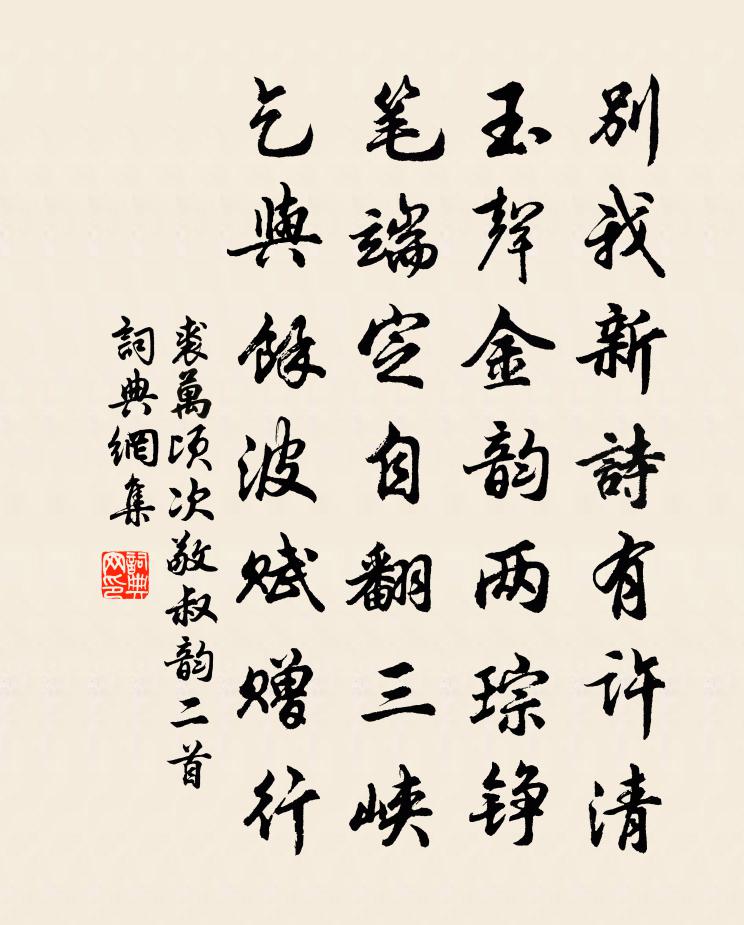 别我新詩有许清
玉聲金韵两琮铮
笔端定自翻三峡
乞與餘波赋赠行
裘萬顷次敬叔韵二首
詞典網集
詞典网印